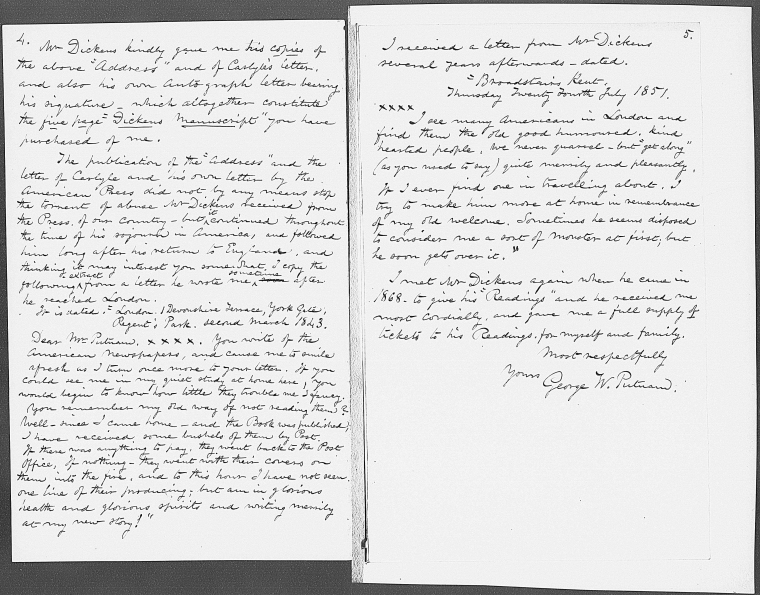 4.
Mr Dickens kindly gave me his copies of
the above "Address" and of Carlyle's letter.
and also his own Autograph letter bearing
his signature – which altogether constitute
the five page "Dickens Manuscript" you have
purchased of me.
The publication of the "Address" and the
letter of Carlyle and his own letter by the
American Press did not by any means stop
the torrent of abuse Mr Dickens received from
the Press of our Country – but it continued throughout
the time of his sojourn in America, and followed
him long after his return to England, and
thinking it may interest you somewhat, I copy the
following extract from a letter he wrote me sometime after
he reached London.
It is dated "London. 1 Devonshire Terrace, York Gate,
Regent's Park. second March 1843.
Dear Mr Putnam. x x x x. You write of the
American newspapers, and cause me to smile
afresh as I turn once more to your letter. If you
could see me in my quiet study at home here, you
would begin to know how little they trouble me I fancy.
You remember my old way of not reading them?
Well – since I came home – and the Book was published,
I have received some bushels of them by Post.
If there was anything to pay, they went back to the Post
Office, If nothing – they went with their covers on
them into the fire, and to this hour I have not seen
one line of their producing; but am in glorious
health and glorious spirits and writing merrily
at my new story!"
5.
I received a letter from Mr Dickens
several years afterwards – dated.
"Broadstairs Kent.
Thursday Twenty Fourth July 1851.
x x x x
I see many Americans in London and
find them the old good humoured, kind
hearted people, We never quarrel – but "get along"
(as you used to say) quite merrily and pleasantly.
If I ever find one in travelling about, I
try to make him more at home in remembrance
of my old welcome. Sometimes he seems disposed
to consider me a sort of monster at first, but
he soon gets over it."
I met Mr Dickens again when he came in
1868. to give his "Readings" and he received me
most cordially, and gave me a full supply of
tickets to his Readings. for myself and family.
Most respectfully
Yours
George W. Putnam.